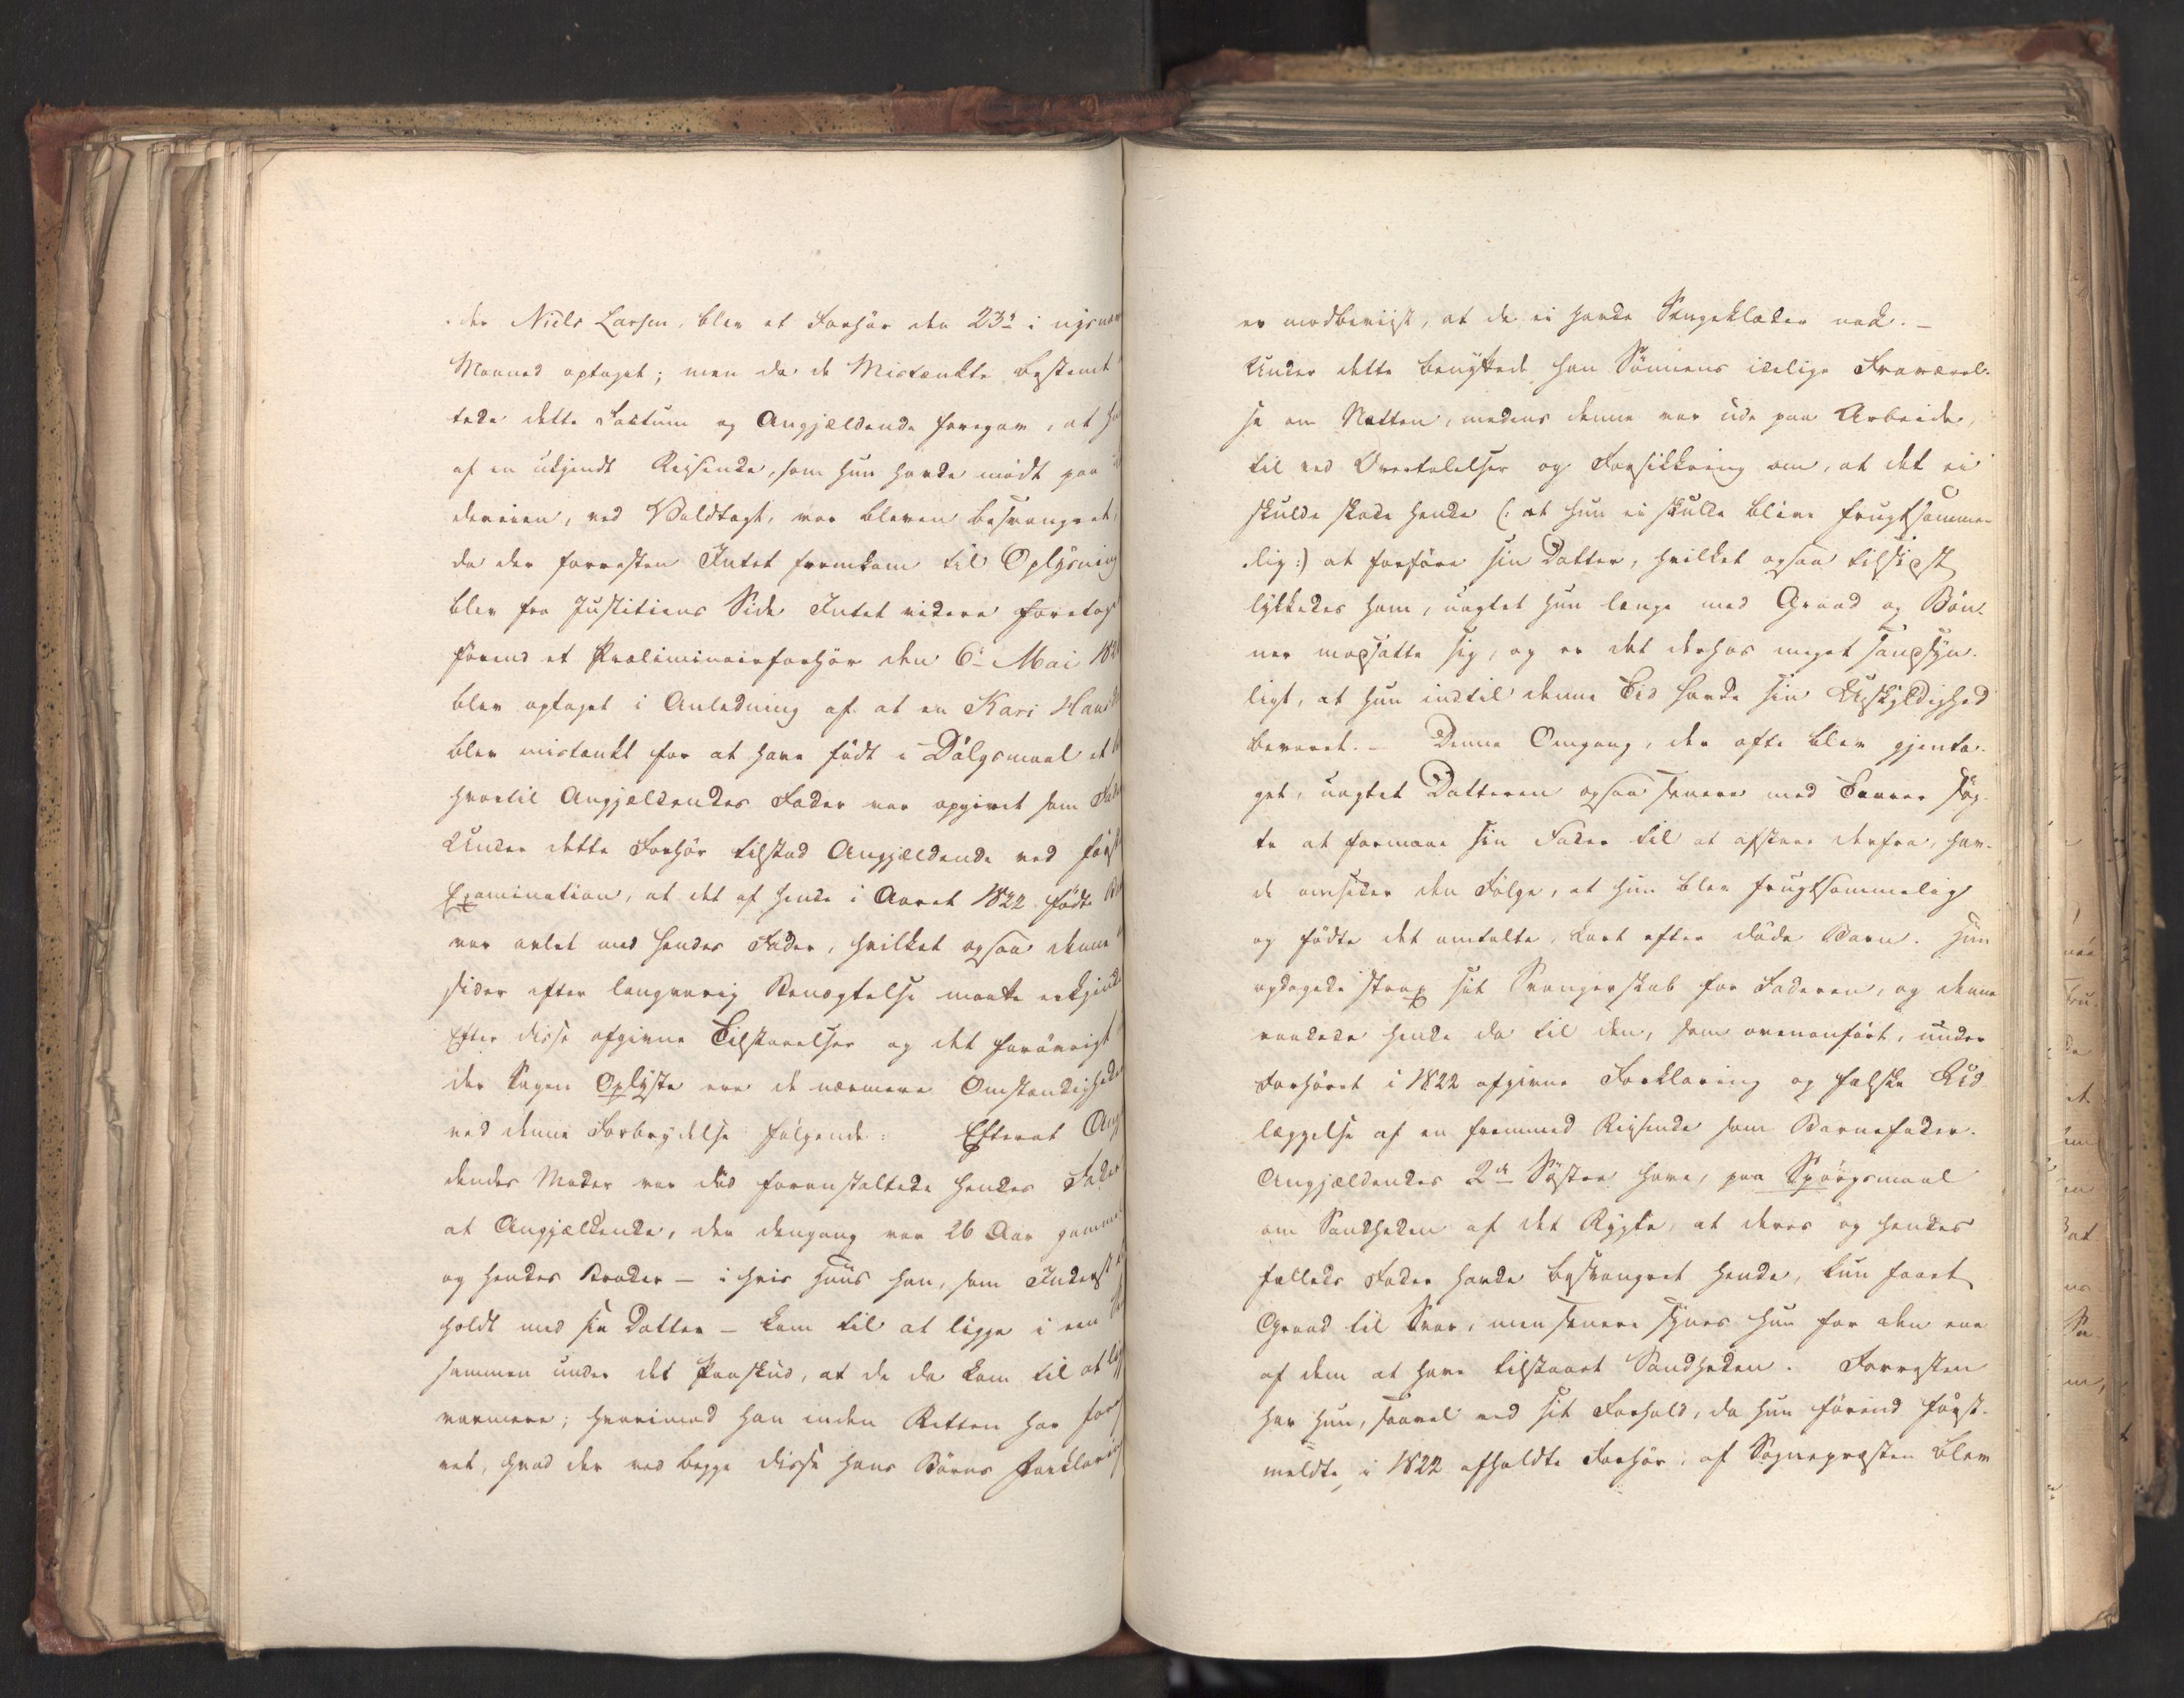 der Niels Larsen, blev et Forhør den 23de i nysnæv
Maaned optaget; men da de Mistænkte bestemt
tede dette Factum og Angjældende foregav, at h
af en ukjendt Reisende, som hun havde mødt paa
derveien, ved Voldtægt, var bleven besvangret,
da der forresten Intet fremkom til Oplysning
blev fra Justitiens Side Intet videre foretag
førend et Præliminairforhør den 6te Mai 182
blev optaget i Anledning af at en Kari Hans
blev mistænkt for at have født i Dølgsmaal et
hvortil Angjældendes Fader var opgivet som Fad
Under dette Forhør tilstod Angjældende ved først
Examination, at det af hende i Aaret 1822 fødte B
var avlet med hendes Fader, hvilket ogsaa denne
sider efter langvarig Benægtelse maatte erkjende
Efter disse afgivne Tilstaaelser og det forøvrigt
der Sagen Oplyste ere de nærmere Omstændighede
ved denne Forbrydelse følgende: Efterat Ang
dendes Moder var død foranstaltede hendes Fader
at Angjældende, der dengang var 26 Aar gamme
og hendes Broder – i hvis Huus han, som Inderst
holdt med sin Datter – kom til at ligge i een
sammen under det Paaskud, at de da kom til at lig
varmere; hvorimod han inden Retten har for
ret, hvad der ved begge disse hans Børns Forklaring
er modbeviist, at de ei havde Sengeklæder nok. –
Under dette benyttede han Sønnens idelige Fraværel-
se om Natten, medens denne var ude paa Arbeide,
til ved Overtalelser og Forsikkring om, at det ei
skulde skade hende (: at hun ei skulde blive frugtsomme-
lig :) at forføre sin Datter, hvilket ogsaa tilsidst
lykkedes ham, uagtet hun længe med Graad og Bøn-
ner modsatte sig, og er det derhos meget sandsyn-
ligt, at hun indtil denne Tid havde sin Uskyldighed
bevaret. – Denne Omgang, der ofte blev gjenta-
get, uagtet Datteren ogsaa senere med Taarer søg-
te at formaae sin Fader til at afstaae derfra, hav-
de omsider den Følge, at hun blev frugtsommelig
og fødte det omtalte, kort efter døde Barn. Hun
opdagede strax sit Svangerskab for Faderen, og denne
raadede hende da til den, som ovenanført, under
Forhøret i 1822 afgivne Forklaring og falske Ud
læggelse af en fremmed Reisende som Barnefader.
Angjældendes 2de Søstre have, paa Spørgsmaal
om Sandheden af det Rygte, at deres og hendes
fælleds Fader havde besvangret hende, kun faaet
Graad til Svar, men senere synes hun for den ene
af dem at have tilstaaet Sandheden. Forresten
har hun, saavel ved sit Forhold, da hun førend først-
meldte, i 1822 afholdte Forhør, af Sognepræsten blev